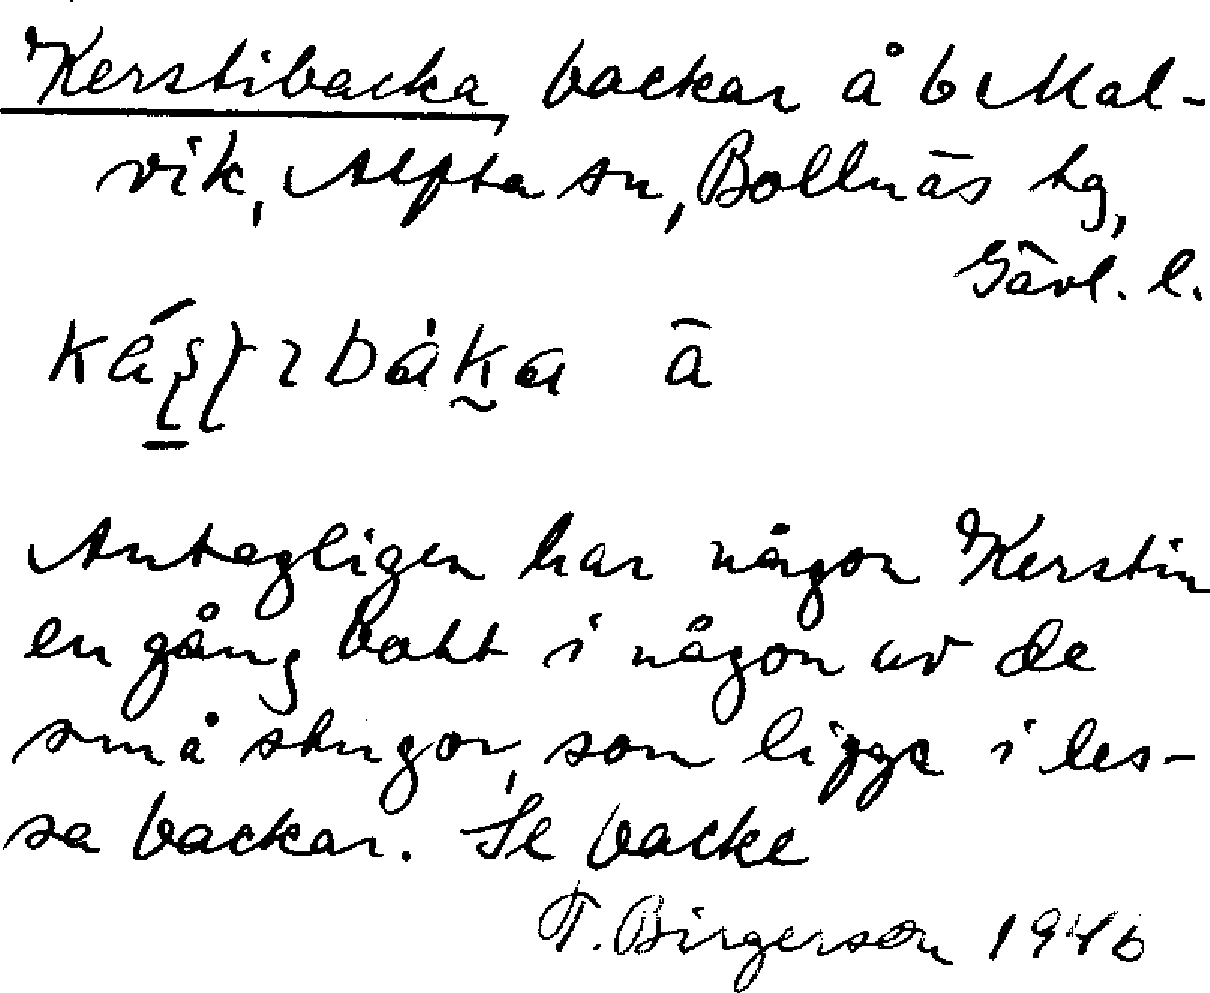 Kerstibacka backar å b Mal-
vik, Alfta sn, Bollnäs tg,
Gävl. l.
ā
Antagligen har någon Kerstin
en gång bott i någon av de
små stugor, som ligge i les-
sa backar. Se backe
T. Birgerson 1946